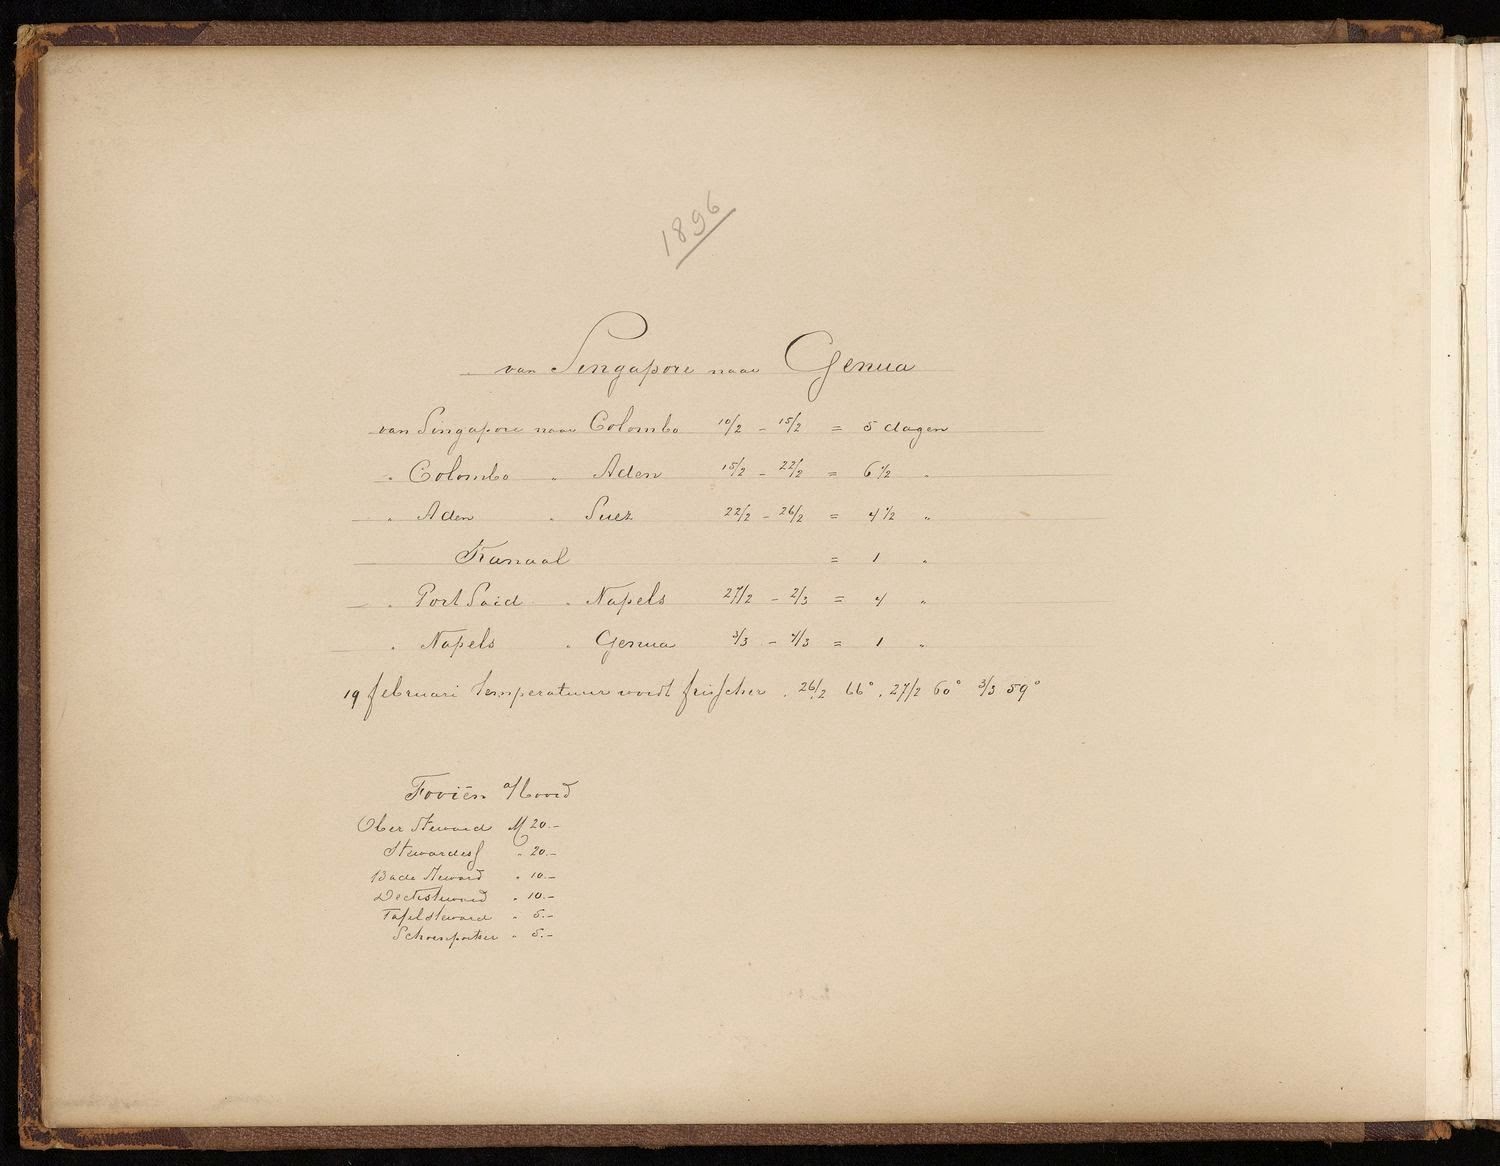 1896
van Singapore naar Genua
van Singapore naar Colombo 10/2 - 15/2 = 5 dagen
" Colombo " Aden 15/2 - 22/2 = 6 1/2 "
" Aden " Suez 22/2 - 26/2 = 4 1/2 "
Kanaal = 1 "
" Port Said " Napels 27/2 - 2/3 = 4 "
" Napels " Genua 3/3 - 4/3 = 1 "
19 februari temperatuur wordt frisscher . 26/2 66° . 27/2 60° 3/3 59°
Fooiën a/boord
Ober Steward M 20.-
Stewardess " 20.-
Bade Steward " 10.-
Decksteward " 10.-
Tafelsteward " 5.-
Schoenpoetser " 5.-